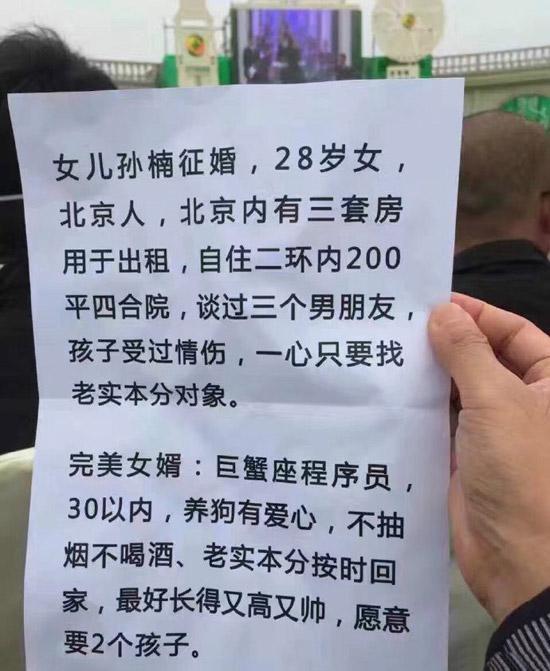 女儿孙楠征婚，28岁女，
北京人，北京内有三套房
用于出租，自住二环内200
平四合院，谈过三个男朋友，
孩子受过情伤，一心只要找
老实本分对象。
完美女婿：巨蟹座程序员，
30以内，养狗有爱心，不抽
烟不喝酒、老实本分按时回
家，最好长得又高又帅，愿意
要2个孩子。